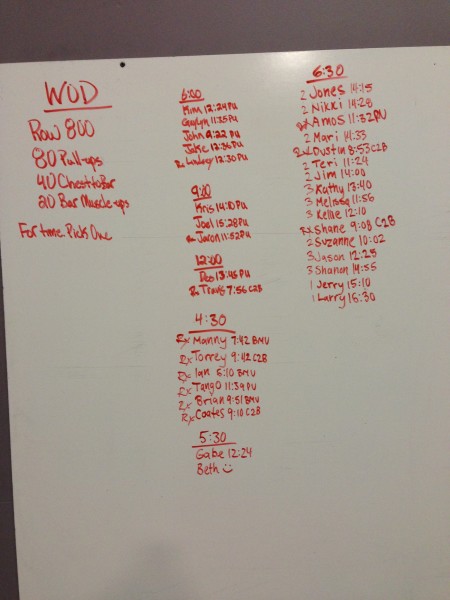 WOD
Row 800
80 Pull-ups
40 Chest to Bar
20 Bar Muscle-ups
For time. Pick One
6:00
Kim 12:24 PU
Guylyn 11:35 PU
John 9:22 PU
Jake 12:36 PU
Rx Lindsay 12:30 PU
9:00
Kris 14:10 PU
Joel 15:28 PU
Rx Jaron 11:52 PU
12:00
Des 13:45 PU
Rx Travis 7:56 C2B
4:30
Rx Manny 7:42 BMU
Rx Torrey 9:42 C2B
Rx Ian 5:10 BMU
Rx Tango 11:39 PU
Rx Brian 9:51 BMU
Rx Coates 9:10 C2B
5:30
Gabe 12:24
Beth
6:30
2 Jones 14:15
2 Nikki 14:28
Rx Amos 11:32 PU
2 Mari 14:33
Rx Dustin 8:53 C2B
2 Teri 11:24
2 Jim 14:00
3 Kathy 13:40
3 Melissa 11:56
3 Kellie 12:10
Rx Shane 9:08 C2B
2 Suzanne 10:02
3 Jason 12:25
3 Shanon 14:55
1 Jerry 15:10
1 Larry 16:30